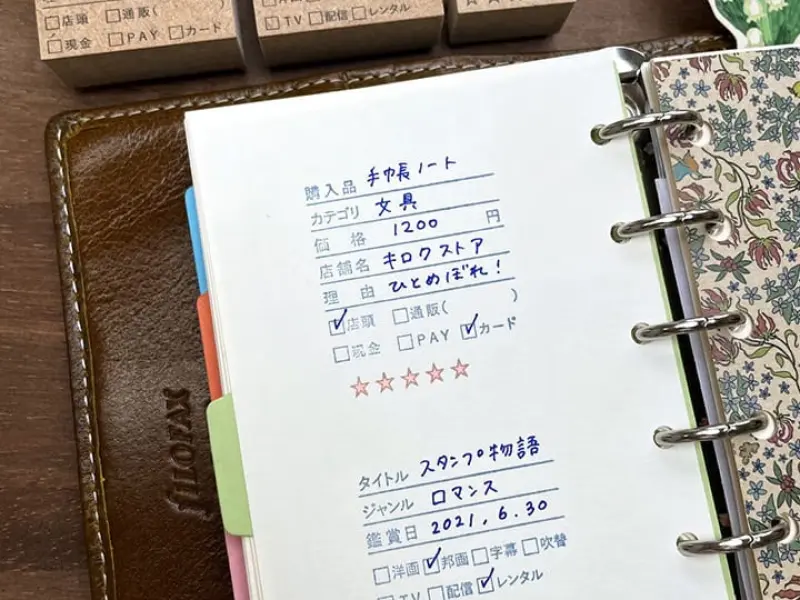 □店頭 □通販(
□現金 □PAY □カード
□TV □配信 □レンタル
購入品 手帳ノート
カテゴリ 文具
価格 1200 円
店舗名 キロクストア
理由 ひとめぼれ!
☑店頭 □通販( )
□現金 □PAY ☑カード
★★★★★
タイトル スタンプ物語
ジャンル ロマンス
鑑賞日 2021.6.30
□洋画 ☑邦画 □字幕 □吹替
□TV □配信 ☑レンタル
fILOFAX